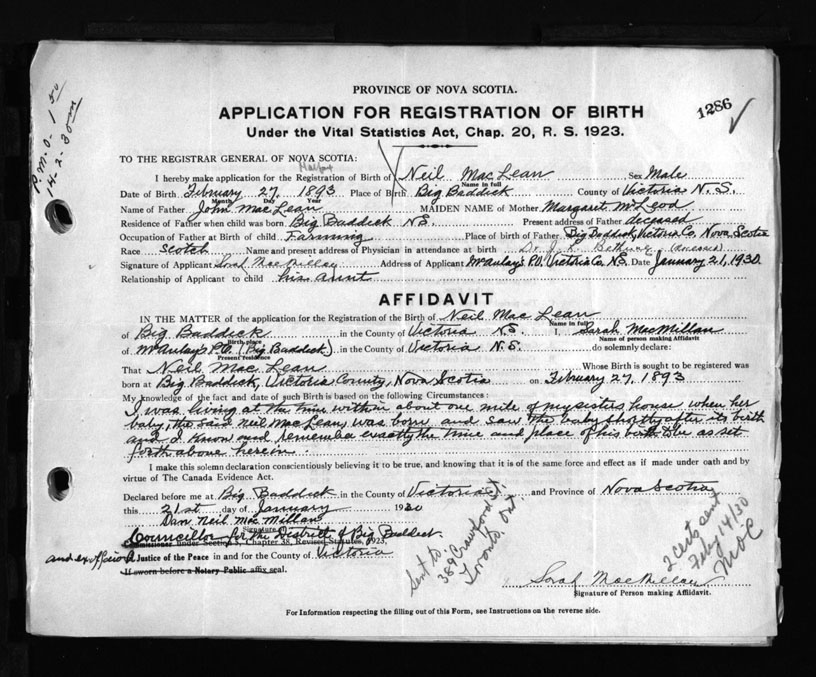 P.M.O. 1.50
14-2-30
PROVINCE OF NOVA SCOTIA.
1286
APPLICATION FOR REGISTRATION OF BIRTH
Under the Vital Statistics Act, Chap. 20, R. S. 1923.
TO THE REGISTRAR GENERAL OF NOVA SCOTIA:
I hereby make application for the Registration of Birth of Neil MacLean Sex Male
Name in full
Date of Birth February 27 1893 Place of Birth Big Baddick County of Victoria N. S.
Month Day Year
Name of Father John MacLean MAIDEN NAME of Mother Margaret McLeod
Residence of Father when child was born Big Baddick N.S. Present address of Father deceased
Occupation of Father at Birth of child Farming Place of birth of Father Big Baddick, Victoria Co, Nova Scotia
Race Scotch Name and present address of Physician in attendance at birth Dr J. L. Bethune (deceased)
Signature of Applicant Sarah MacMillan Address of Applicant McAulay's P.O. Victoria Co. N.S. Date January 21, 1930.
Relationship of Applicant to child his aunt
AFFIDAVIT
IN THE MATTER of the application for the Registration of the Birth of Neil Mac Lean
Name in full
of Big Baddick in the County of Victoria N.S. I, Sarah MacMillan
Birth place Name of person making Affidavit
of McAulay's P.O. (Big Baddick) in the County of Victoria N.S. do solemnly declare:
Present residence
That Neil Mac Lean Whose Birth is sought to be registered was
born at Big Baddick, Victoria County, Nova Scotia on February 27, 1893
My knowledge of the fact and date of such Birth is based on the following Circumstances:
I was living at the time within about one mile of my sisters house when her
baby, the said Neil MacLean, was born and saw the baby shortly after its birth
and I know and remember exactly the time and place of his birth to be as set
forth above herein.
I make this solemn declaration conscientiously believing it to be true, and knowing that it is of the same force and effect as if made under oath and by
virtue of The Canada Evidence Act.
Declared before me at Big Baddick in the County of Victoria and Province of Nova Scotia
this 21st day of January 1930
Dan Neil MacMillan
Signature of
Councillor for the District of Big Baddick
Commissioner under Section 5, Chapter 38, Revised Statutes, 1923,
and ex officio a Justice of the Peace in and for the County of Victoria
If sworn before a Notary Public affix seal.
Sent to
389 Crawford St
Toronto, Ont
2 Certs sent
Feby 14/30
Sarah MacMillan
Signature of Person making Affidavit.
For Information respecting the filling out of this Form, see Instructions on the reverse side.